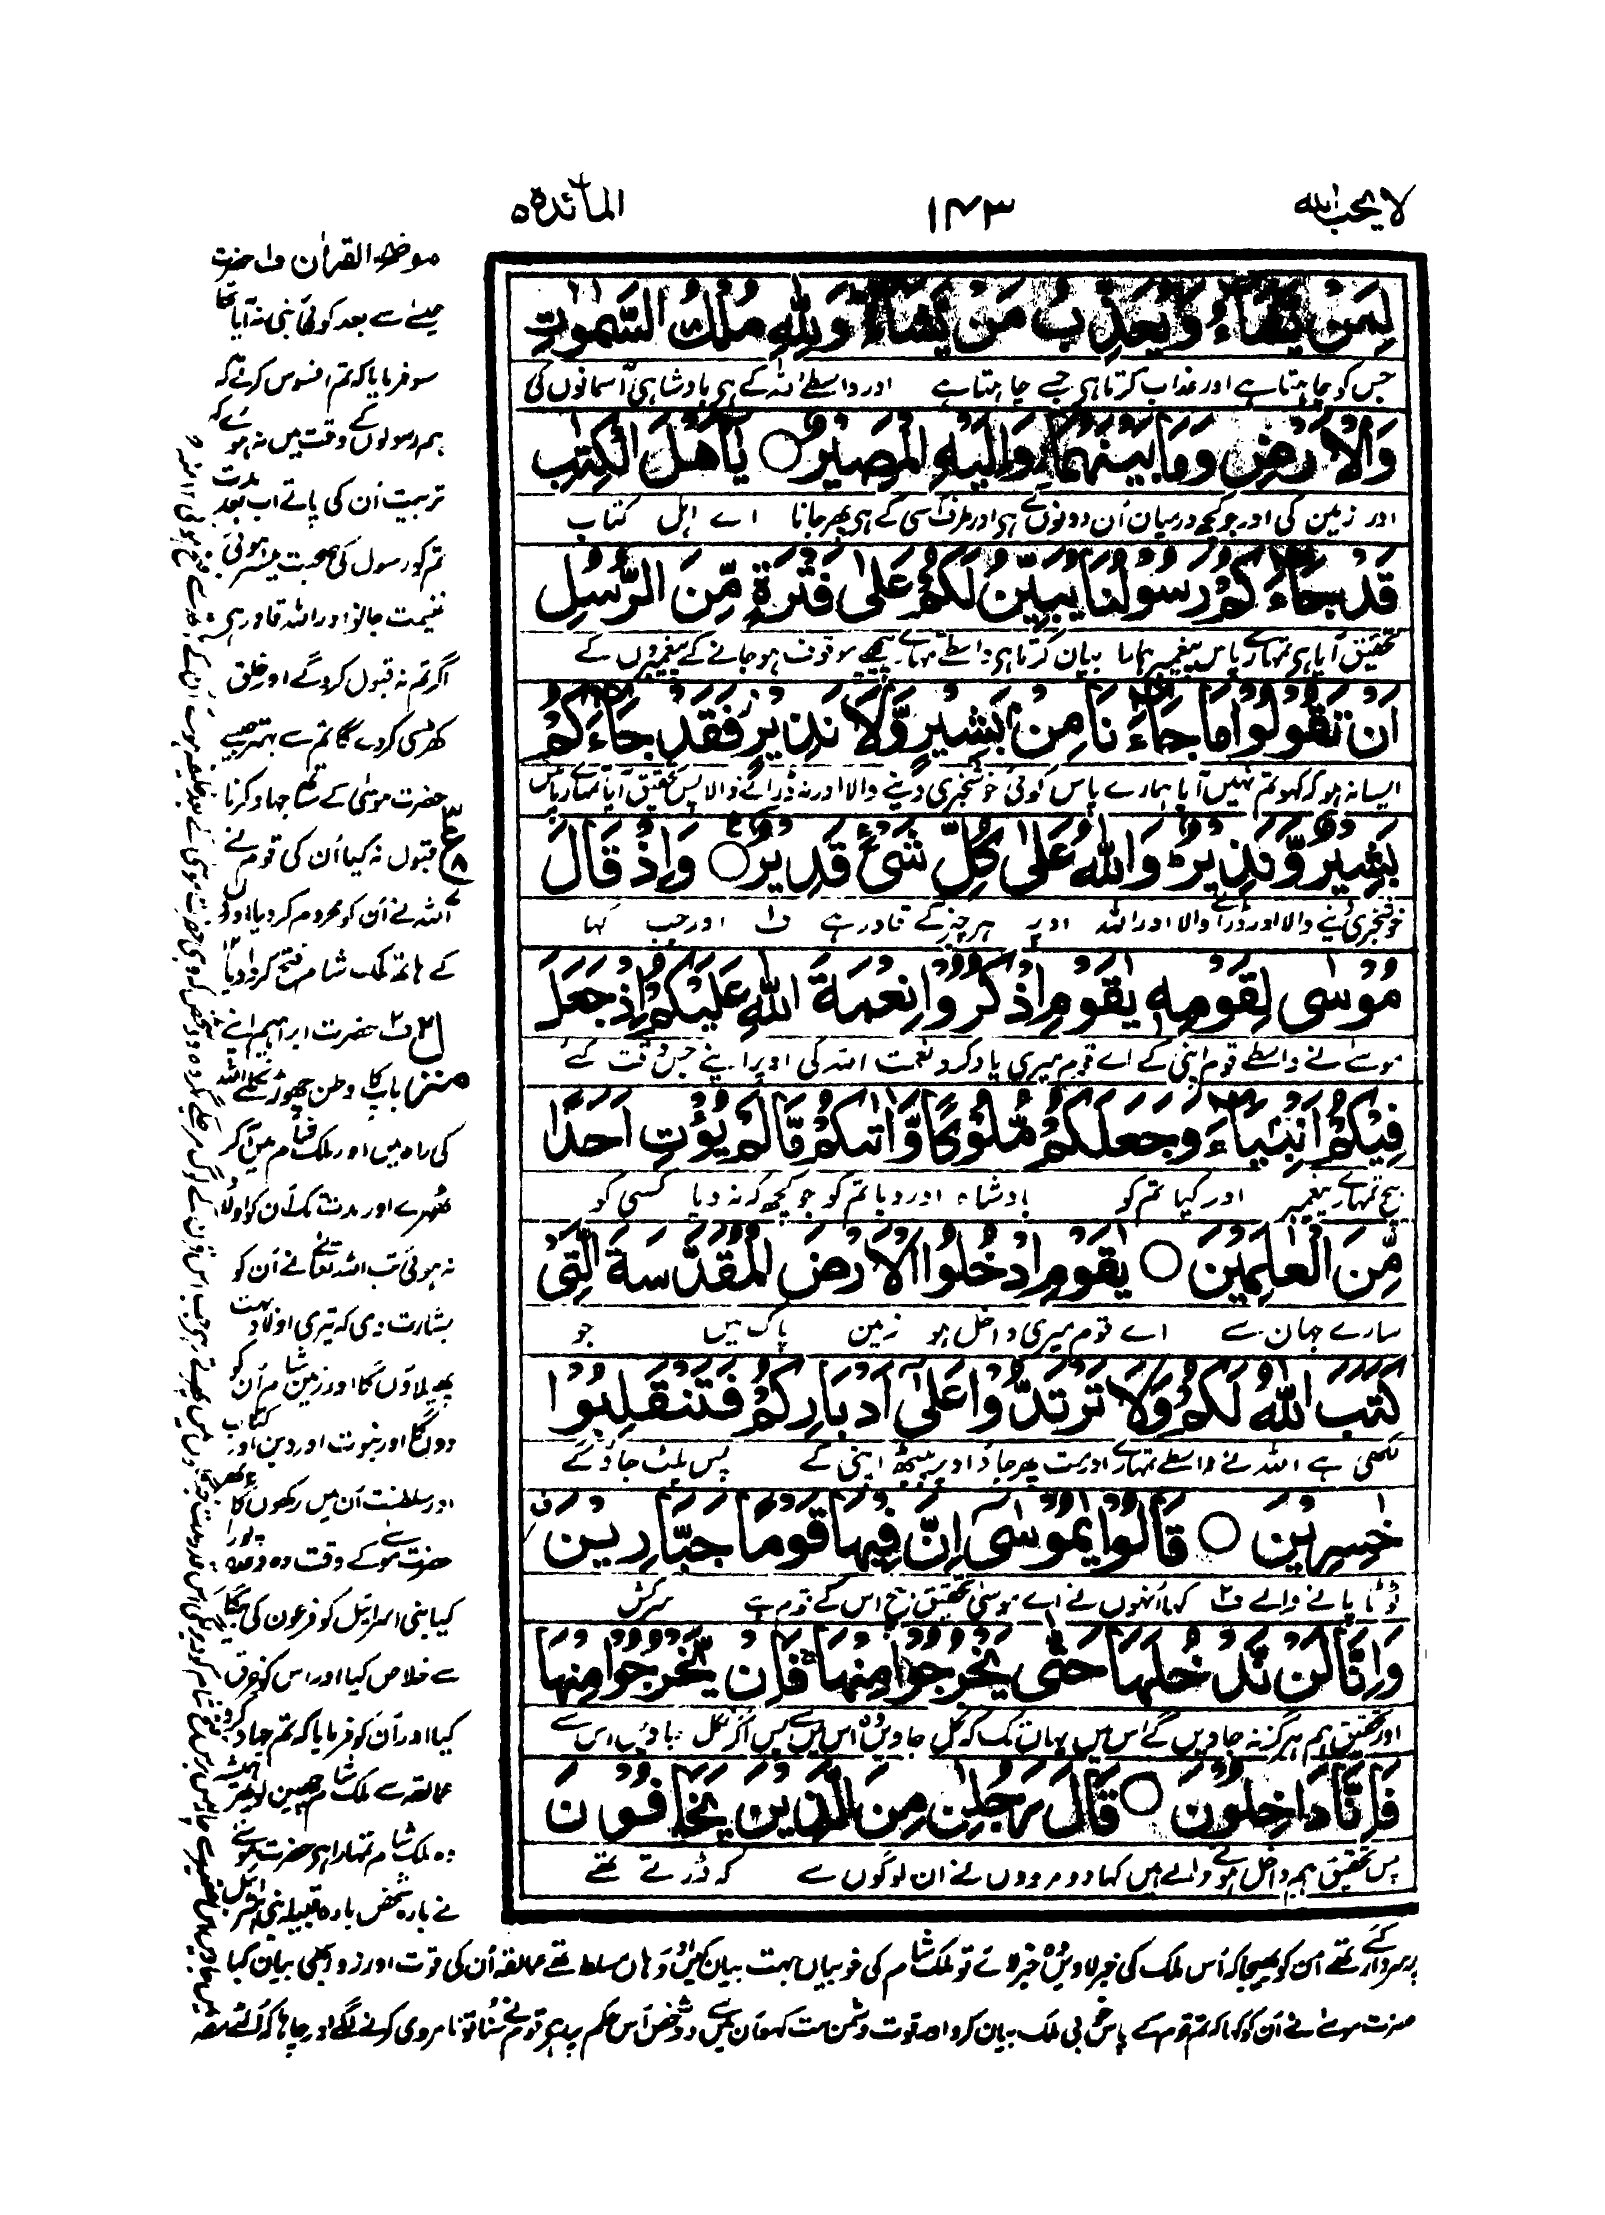 لا يحب الله
١٤٣
المائدة ٥
لِمَنْ يَّشَآءُ وَيُعَذِّبُ مَنْ يَّشَآءُ وَلِلّٰهِ مُلْكُ السَّمٰوٰتِ
جس کو چاہتا ہے اور عذاب کرتا ہی جسے چاہتا ہے اور واسطے اللہ کے ہی بادشاہی آسمانوں کی
وَالْاَرْضِ وَمَا بَيْنَهُمَا وَاِلَيْهِ الْمَصِيْرُ ○ يٰٓاَهْلَ الْكِتٰبِ
اور زمین کی اور جو کچھ درمیان اُن دونوں کے ہی اور طرف اسی کے ہی پھر جانا اے اہل کتاب
قَدْ جَآءَكُمْ رَسُوْلُنَا يُبَيِّنُ لَكُمْ عَلٰى فَتْرَةٍ مِّنَ الرُّسُلِ
تحقیق آیا ہی تمہارے پاس پیغمبر ہمارا بیان کرتا ہی واسطے تمہارے پیچھے موقوف ہو جانے کے پیغمبروں کے
اَنْ تَقُوْلُوْا مَا جَآءَنَا مِنْۢ بَشِيْرٍ وَّلَا نَذِيْرٍ فَقَدْ جَآءَكُمْ
ایسا نہ ہو کہ کہو تم نہیں آیا ہمارے پاس کوئی خوشخبری دینے والا اور نہ ڈرانے والا پس تحقیق آیا تمہارے پاس
بَشِيْرٌ وَّنَذِيْرٌ وَاللّٰهُ عَلٰى كُلِّ شَىْءٍ قَدِيْرٌ ○ وَاِذْ قَالَ
خوشخبری دینے والا اور ڈرانے والا اور اللہ اوپر ہر چیز کے قادر ہے ف۱ اور جب کہا
مُوْسٰى لِقَوْمِهٖ يٰقَوْمِ اذْكُرُوْا نِعْمَةَ اللّٰهِ عَلَيْكُمْ اِذْ جَعَلَ
موسےٰ نے واسطے قوم اپنی کے اے قوم میری یاد کرو نعمت اللہ کی اوپر اپنے جس وقت کئے
فِيْكُمْ اَنْۢبِيَآءَ وَجَعَلَكُمْ مُّلُوْكًا وَّاٰتٰىكُمْ مَّا لَمْ يُؤْتِ اَحَدًا
بیچ تمہارے پیغمبر اور کیا تم کو بادشاہ اور دیا تم کو جو کچھ کہ نہ دیا کسی کو
مِّنَ الْعٰلَمِيْنَ ○ يٰقَوْمِ ادْخُلُوا الْاَرْضَ الْمُقَدَّسَةَ الَّتِىْ
سارے جہان سے اے قوم میری داخل ہو زمین پاک میں جو
كَتَبَ اللّٰهُ لَكُمْ وَلَا تَرْتَدُّوْا عَلٰٓى اَدْبَارِكُمْ فَتَنْقَلِبُوْا
لکھی ہے اللہ نے واسطے تمہارے اور مت پھر جاؤ اوپر پیٹھ اپنی کے پس پلٹ جاؤ گے
خٰسِرِيْنَ ○ قَالُوْا يٰمُوْسٰٓى اِنَّ فِيْهَا قَوْمًا جَبَّارِيْنَ
ٹوٹا پانے والے ف۲ کہا اُنہوں نے اے موسیٰ تحقیق بیچ اس کے قوم ہے سرکش
وَاِنَّا لَنْ نَّدْخُلَهَا حَتّٰى يَخْرُجُوْا مِنْهَا فَاِنْ يَّخْرُجُوْا مِنْهَا
اور تحقیق ہم ہرگز نہ جاویں گے اس میں یہاں تک کہ نکل جاویں وہ اس میں سے پس اگر نکل جاویں اس سے
فَاِنَّا دَاخِلُوْنَ ○ قَالَ رَجُلٰنِ مِنَ الَّذِيْنَ يَخَافُوْنَ
پس تحقیق ہم داخل ہونے والے ہیں کہا دو مردوں نے ان لوگوں سے کہ ڈرتے تھے
موضح القرآن ف۱ حضرت
عیسےٰ سے بعد کوئی نبی نہ آیا تھا
سو فرمایا کہ تم افسوس کرتے کہ
ہم رسولوں کے وقت میں نہ ہوئے کہ
تربیت اُن کی پاتے اب بعد مدت
تم کو رسول کی صحبت میسر ہوئی
غنیمت جانو اور اللہ قادر ہی
اگر تم نہ قبول کروگے اور خلق
کھڑی کردے گا تم سے بہتر جیسے
حضرت موسیٰ کے ساتھ جہاد کرنا
قبول نہ کیا اُن کی قوم نے
اللہ نے اُن کو محروم کردیا اوروں
کے ہاتھ ملک شام فتح کروا دیا
ف۲ حضرت ابراہیم اپنے
منزل
باپ کا وطن چھوڑ نکلے اللہ
کی راہ میں اور ملک شام میں آکر
ٹھہرے اور مدت تک اُن کو اولاد
نہ ہوئی تب اللہ تعالیٰ نے اُن کو
بشارت دی کہ تیری اولاد بہت
پھیلاؤں گا اور زمین شام اُن کو
دوں گا اور نبوت اور دین اور کتاب
اور سلطنت اُن میں رکھوں گا پھر
حضرت موسےٰ کے وقت وہ وعدہ پورا
کیا بنی اسرائیل کو فرعون کی بیگار
سے خلاص کیا اور اس کو غرق
کیا اور اُن کو فرمایا کہ تم جہاد کرو
عمالقہ سے ملک شام چھین لو پھر ہمیشہ
وہ ملک شام تمہارا ہی حضرت موسیٰ نے
نے بارہ شخص بارہ قبیلہ بنی اسرائیل
پر سردار کئے تھے اُن کو بھیجا کہ اُس ملک کی خبر لاویں وہ خبر لائے تو ملک شام کی خوبیاں بہت بیان کیں اور وہاں مسلط تھے عمالقہ اُن کی قوت اور زور بھی بیان کیا
حضرت موسےٰ نے اُن کو کہا کہ تم قوم کے پاس خوبی ملک بیان کرو اور قوت دشمن مت کہو اُن میں سے دو شخص اُس حکم پر رہے قوم نے سُنا تو نامردی کرنے لگے اور چاہا کہ اُلٹے مصر